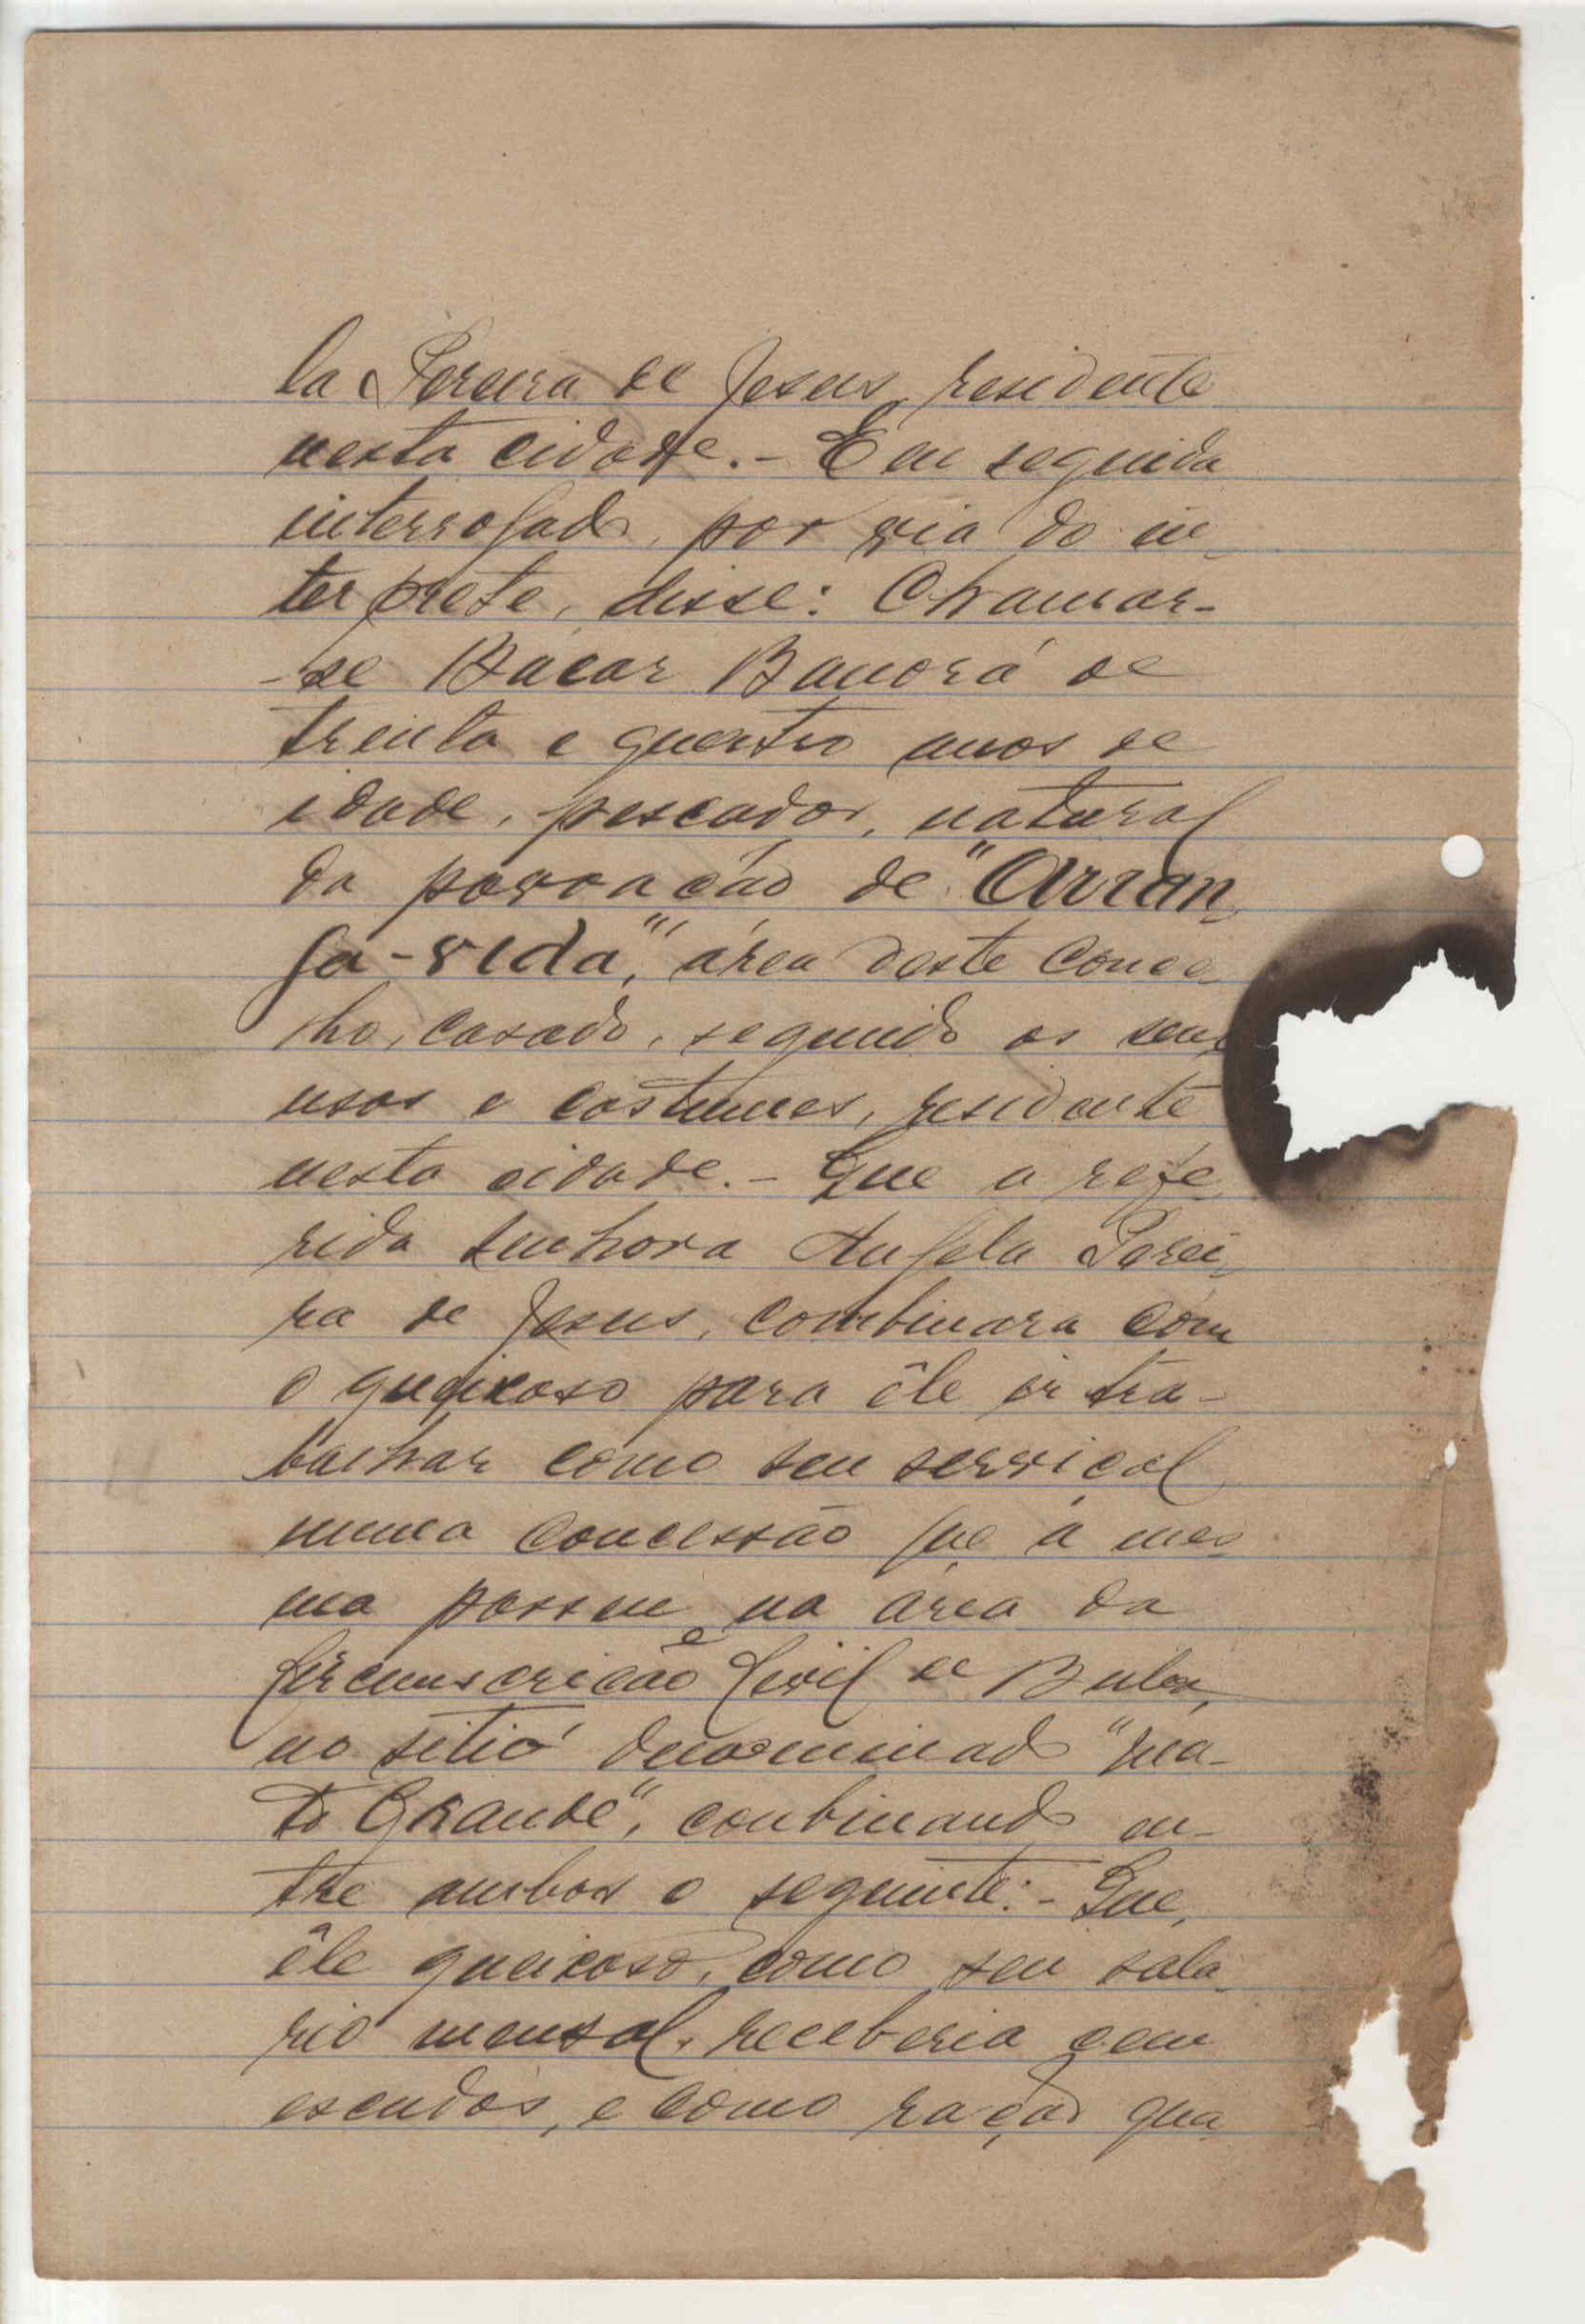 la Pereira de Jesus, residente
nesta cidade. - E em seguida
interrogado, por via do in-
terprete, disse: Chamar-
-se Bácar Banorá de
trinta e quatro anos de
idade, pescador, natural
da povoação de "Arran-
ja-vida", área deste conce-
lho, casado, segundo os seus
usos e costumes, residente
nesta cidade. - Que a refe-
rida senhora Angela Perei-
ra de Jesus, combinara com
o queixoso para êle ir tra-
balhar como seu serviçal
numa concessão que a mes-
ma possue na área da
Circunscrição Civil de Buba,
no sitio denominado "Ma-
to Grande", combinando en-
tre ambos o seguinte: - Que,
êle queixoso, como seu sala-
rio mensal, receberia cem
escudos, e como ração qua-